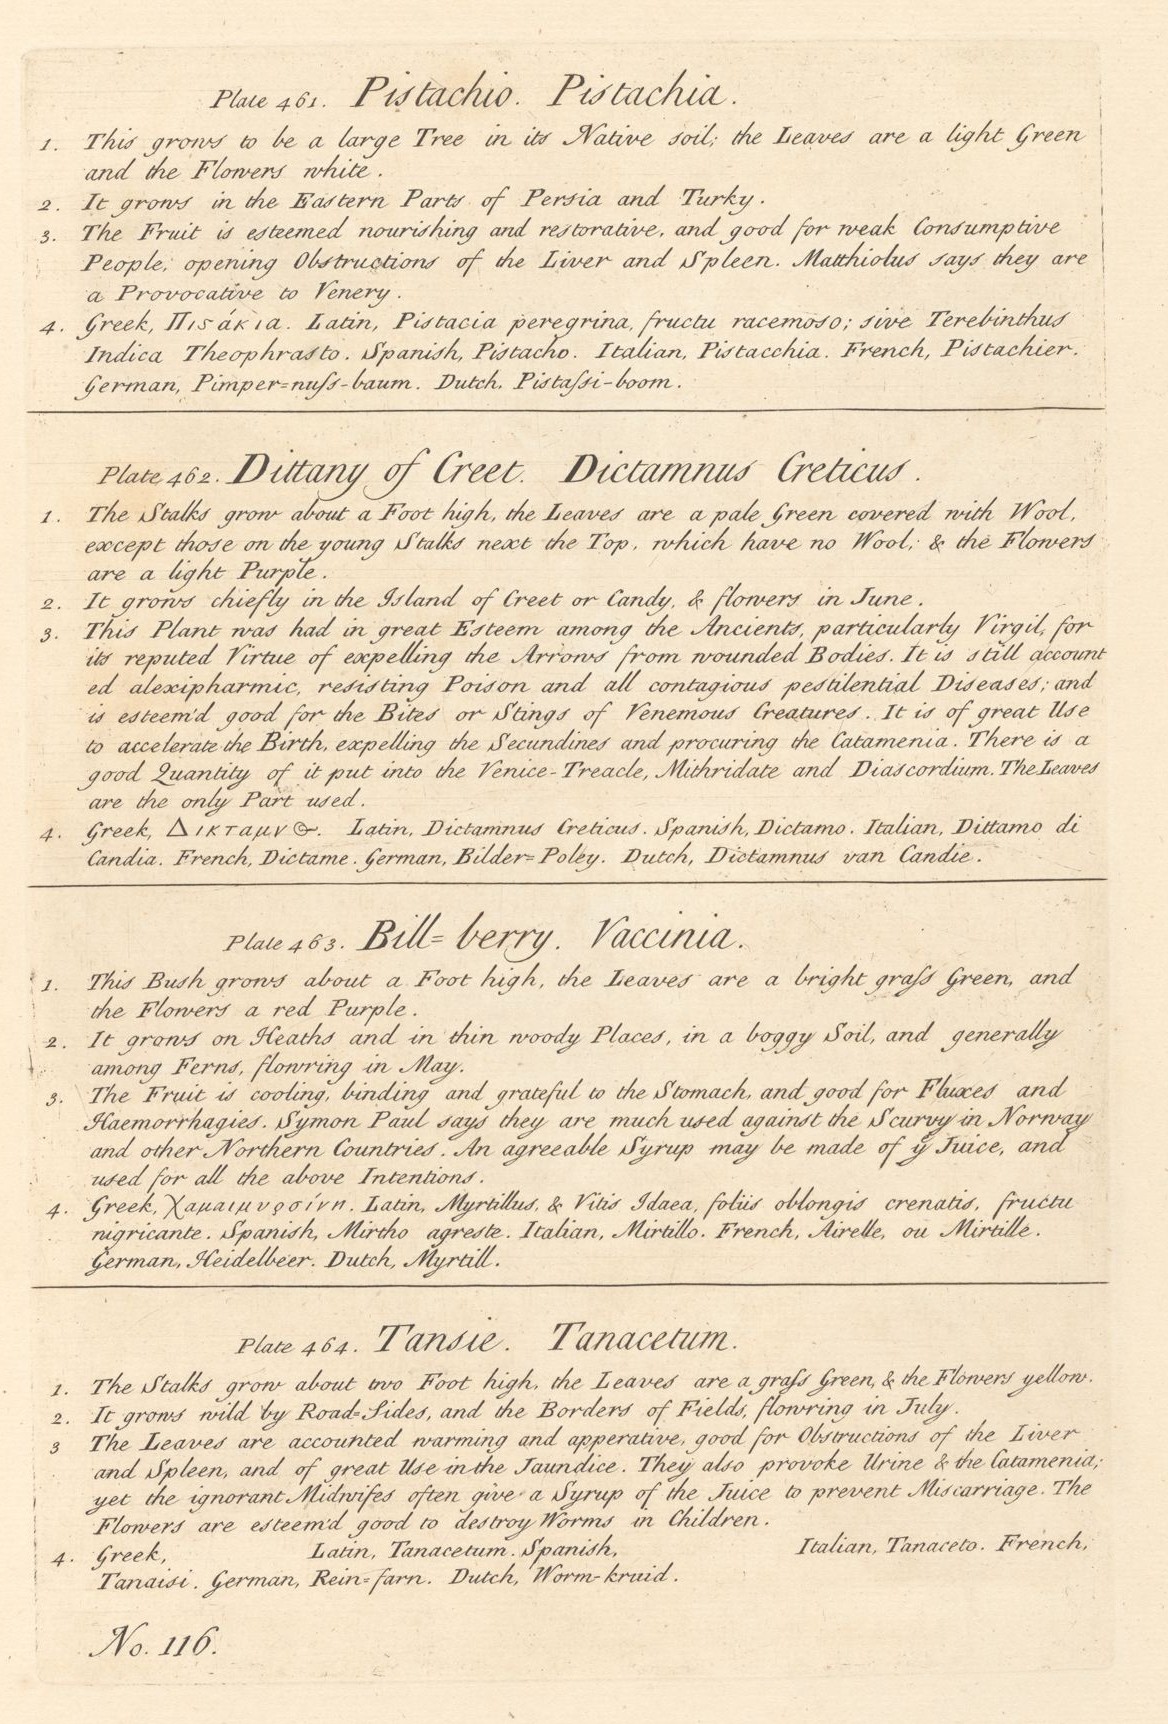 Plate 461. Pistachio. Pistachia.
1. This grows to be a large Tree in its Native soil; the Leaves are a light Green
and the Flowers white.
2. It grows in the Eastern Parts of Persia and Turky.
3. The Fruit is esteemed nourishing and restorative, and good for weak Consumptive
People; opening Obstructions of the Liver and Spleen. Matthiolus says they are
a Provocative to Venery.
4. Greek, Πιϛάκια. Latin, Pistacia peregrina, fructu racemoso; sive Terebinthus
Indica Theophrasto. Spanish, Pistacho. Italian, Pistacchia. French, Pistachier.
German, Pimper=nuſs-baum. Dutch, Pistaſsi-boom.
Plate 462. Dittany of Creet. Dictamnus Creticus.
1. The Stalks grow about a Foot high, the Leaves are a pale Green covered with Wool,
except those on the young Stalks next the Top, which have no Wool; & the Flowers
are a light Purple.
2. It grows chiefly in the Island of Creet or Candy, & flowers in June.
3. This Plant was had in great Esteem among the Ancients, particularly Virgil, for
its reputed Virtue of expelling the Arrows from wounded Bodies. It is still account
ed alexipharmic, resisting Poison and all contagious pestilential Diseases; and
is esteem'd good for the Bites or Stings of Venemous Creatures. It is of great Use
to accelerate the Birth, expelling the Secundines and procuring the Catamenia. There is a
good Quantity of it put into the Venice-Treacle, Mithridate and Diascordium. The Leaves
are the only Part used.
4. Greek, Δικταμνϗ. Latin, Dictamnus Creticus. Spanish, Dictamo. Italian, Dittamo di
Candia. French, Dictame. German, Bilder=Poley. Dutch, Dictamnus van Candie.
Plate 463. Bill=berry. Vaccinia.
1. This Bush grows about a Foot high, the Leaves are a bright graſs Green, and
the Flowers a red Purple.
2. It grows on Heaths and in thin woody Places, in a boggy Soil, and generally
among Ferns, flowring in May.
3. The Fruit is cooling, binding and grateful to the Stomach, and good for Fluxes and
Haemorrhagies. Symon Paul says they are much used against the Scurvy in Norway
and other Northern Countries. An agreeable Syrup may be made of ẏ Juice, and
used for all the above Intentions.
4. Greek, Χαμαιμυρσίνη. Latin, Myrtillus, & Vitis Idaea, foliis oblongis crenatis, fructu
nigricante. Spanish, Mirtho agreste. Italian, Mirtillo. French, Airelle, ou Mirtille.
German, Heidelbeer. Dutch, Myrtill.
Plate 464. Tansie. Tanacetum.
1. The Stalks grow about two Foot high, the Leaves are a graſs Green, & the Flowers yellow.
2. It grows wild by Road=Sides, and the Borders of Fields, flowring in July.
3 The Leaves are accounted warming and apperative, good for Obstructions of the Liver
and Spleen, and of great Use in the Jaundice. They also provoke Urine & the Catamenia;
yet the ignorant Midwifes often give a Syrup of the Juice to prevent Miscarriage. The
Flowers are esteem'd good to destroy Worms in Children.
4. Greek, Latin, Tanacetum. Spanish, Italian, Tanaceto. French,
Tanaisi. German, Rein=farn. Dutch, Worm-kruid.
No. 116.